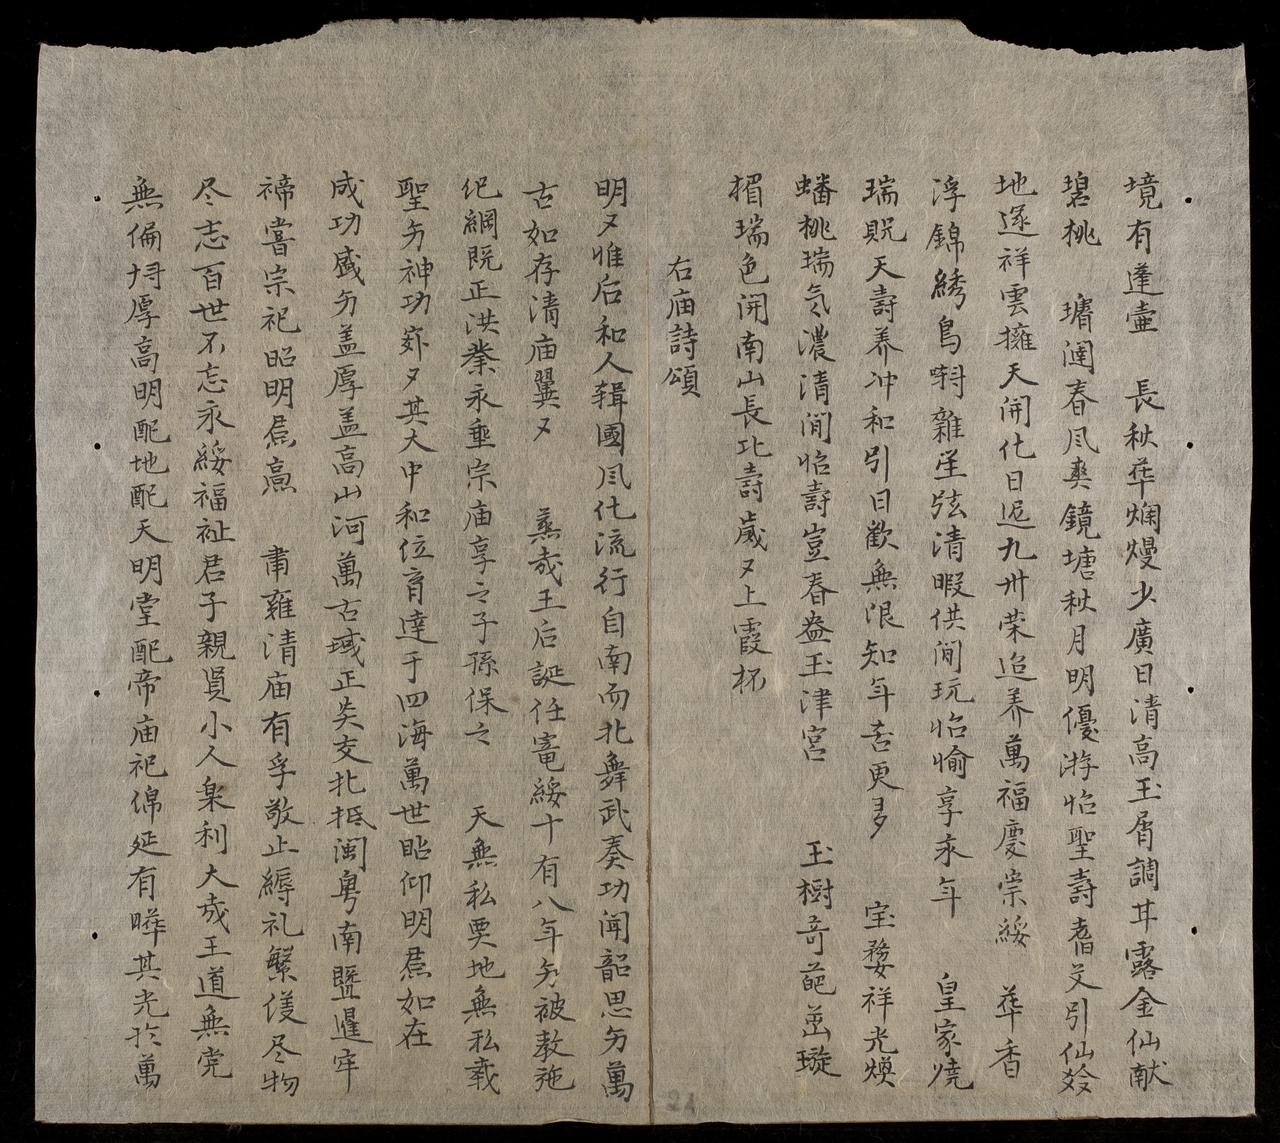 境有蓬壺　長秋華爛熳少廣日清高玉屑調甘露金仙献
碧桃　瑤闈春风奭鏡塘秋月明優游怡聖壽耆艾引仙齡
地遂祥雲擁天開化日遲九州荣迨养萬福慶崇綏　華香
浮錦綉鳥哢雜笙弦清暇供间玩怡愉享永年　皇家燒
瑞貺天壽养冲和引日歡無限知年舌更多　宝婺祥光煥
蟠桃瑞氣濃清间怡壽豈春盎玉津宮　玉樹奇葩茁璇
楣瑞色開南山長比壽歲〻上霞杯
右庙詩頌
明〻惟后和人辑國风化流行自南而北舞武奏功闻韶思旁萬
古如存清庙翼〻　蒸哉王后誕任寵綏十有八年旁被教施
纪綱既正洪業永垂宗庙享之子孫保之　天無私覆地無私載
聖旁神功郊〻其大中和位育達于四海萬世昭仰明焄如在
成功盛旁盖厚盖高山河萬古域正奂交北抵闽粤南暨暹牢
禘嘗宗祀昭明焄熏　肅雍清庙有孚敬止縟礼繁仪尽物
尽志百世不忘永綏福祉君子親賢小人樂利大哉王道無党
無偏博厚高明配地配天明堂配帝庙祀綿延有曄其光於萬